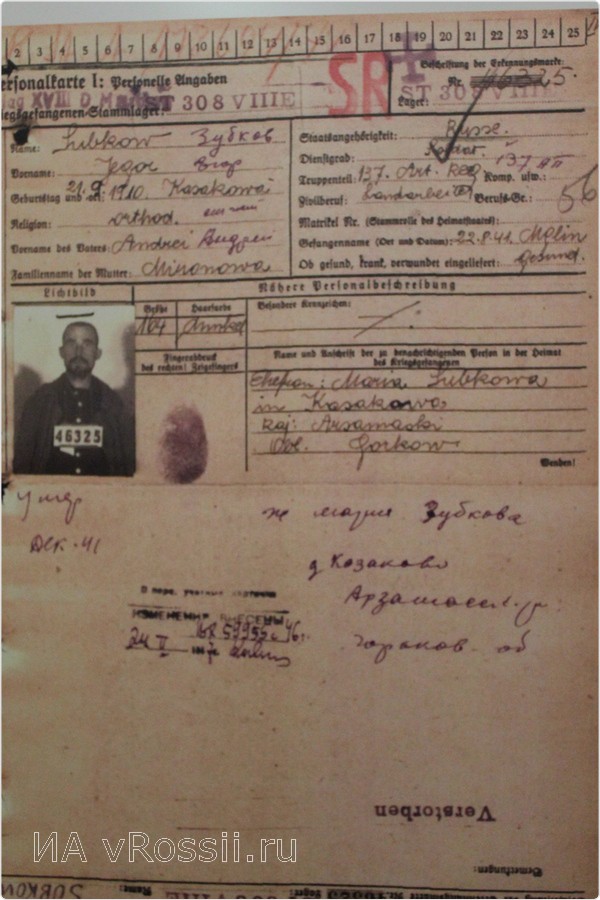 2 3 4 5 6 7 8 9 10 11 12 13 14 15 16 17 18 19 20 21 22 23 24 25
ersonalkarte I: Personelle Angaben
SR
Beschriftung der Erkennungsmarke:
Nr. 46325.
ag XVIII D ST 308 VIII E
Lager: ST 308 VIII E
iegsgefangenen-Stammlager:
Name: Subkow Зубков
Vorname: Jegor Егор
Geburtstag und -ort: 21.9.1910. Kasakowa
Religion: orthod.
Vorname des Vaters: Andrei Андрей
Familienname der Mutter: Mironowa
Staatsangehörigkeit: Russe.
Dienstgrad:
Truppenteil: 137. Art. Reg Komp. usw.: 137 ап
Zivilberuf: Landarbeiter Berufs-Gr.: 56
Matrikel Nr. (Stammrolle des Heimatstaates):
Gefangennahme (Ort und Datum): 22.8.41. Malin
Ob gesund, krank, verwundet eingeliefert: gesund.
Lichtbild
46325
Nähere Personalbeschreibung
Größe Haarfarbe Besondere Kennzeichen:
164 dunkel
Fingerabdruck
des rechten! Zeigefingers
Name und Anschrift der zu benachrichtigenden Person in der Heimat
des Kriegsgefangenen
Ehefrau: Maria Subkowa
in Kasakowa
Raj: Arsamaski
Obl. Gorkow
Wenden!
Умер
Дек. 41
ж Мария Зубкова
д Козаково
Арзамасск. р.
Горьков. об
В перс. учетные карточки
ИЗМЕНЕНИЯ ВНЕСЕНЫ
Verstorben
Bemerkungen:
Name:
ИА vRossii.ru